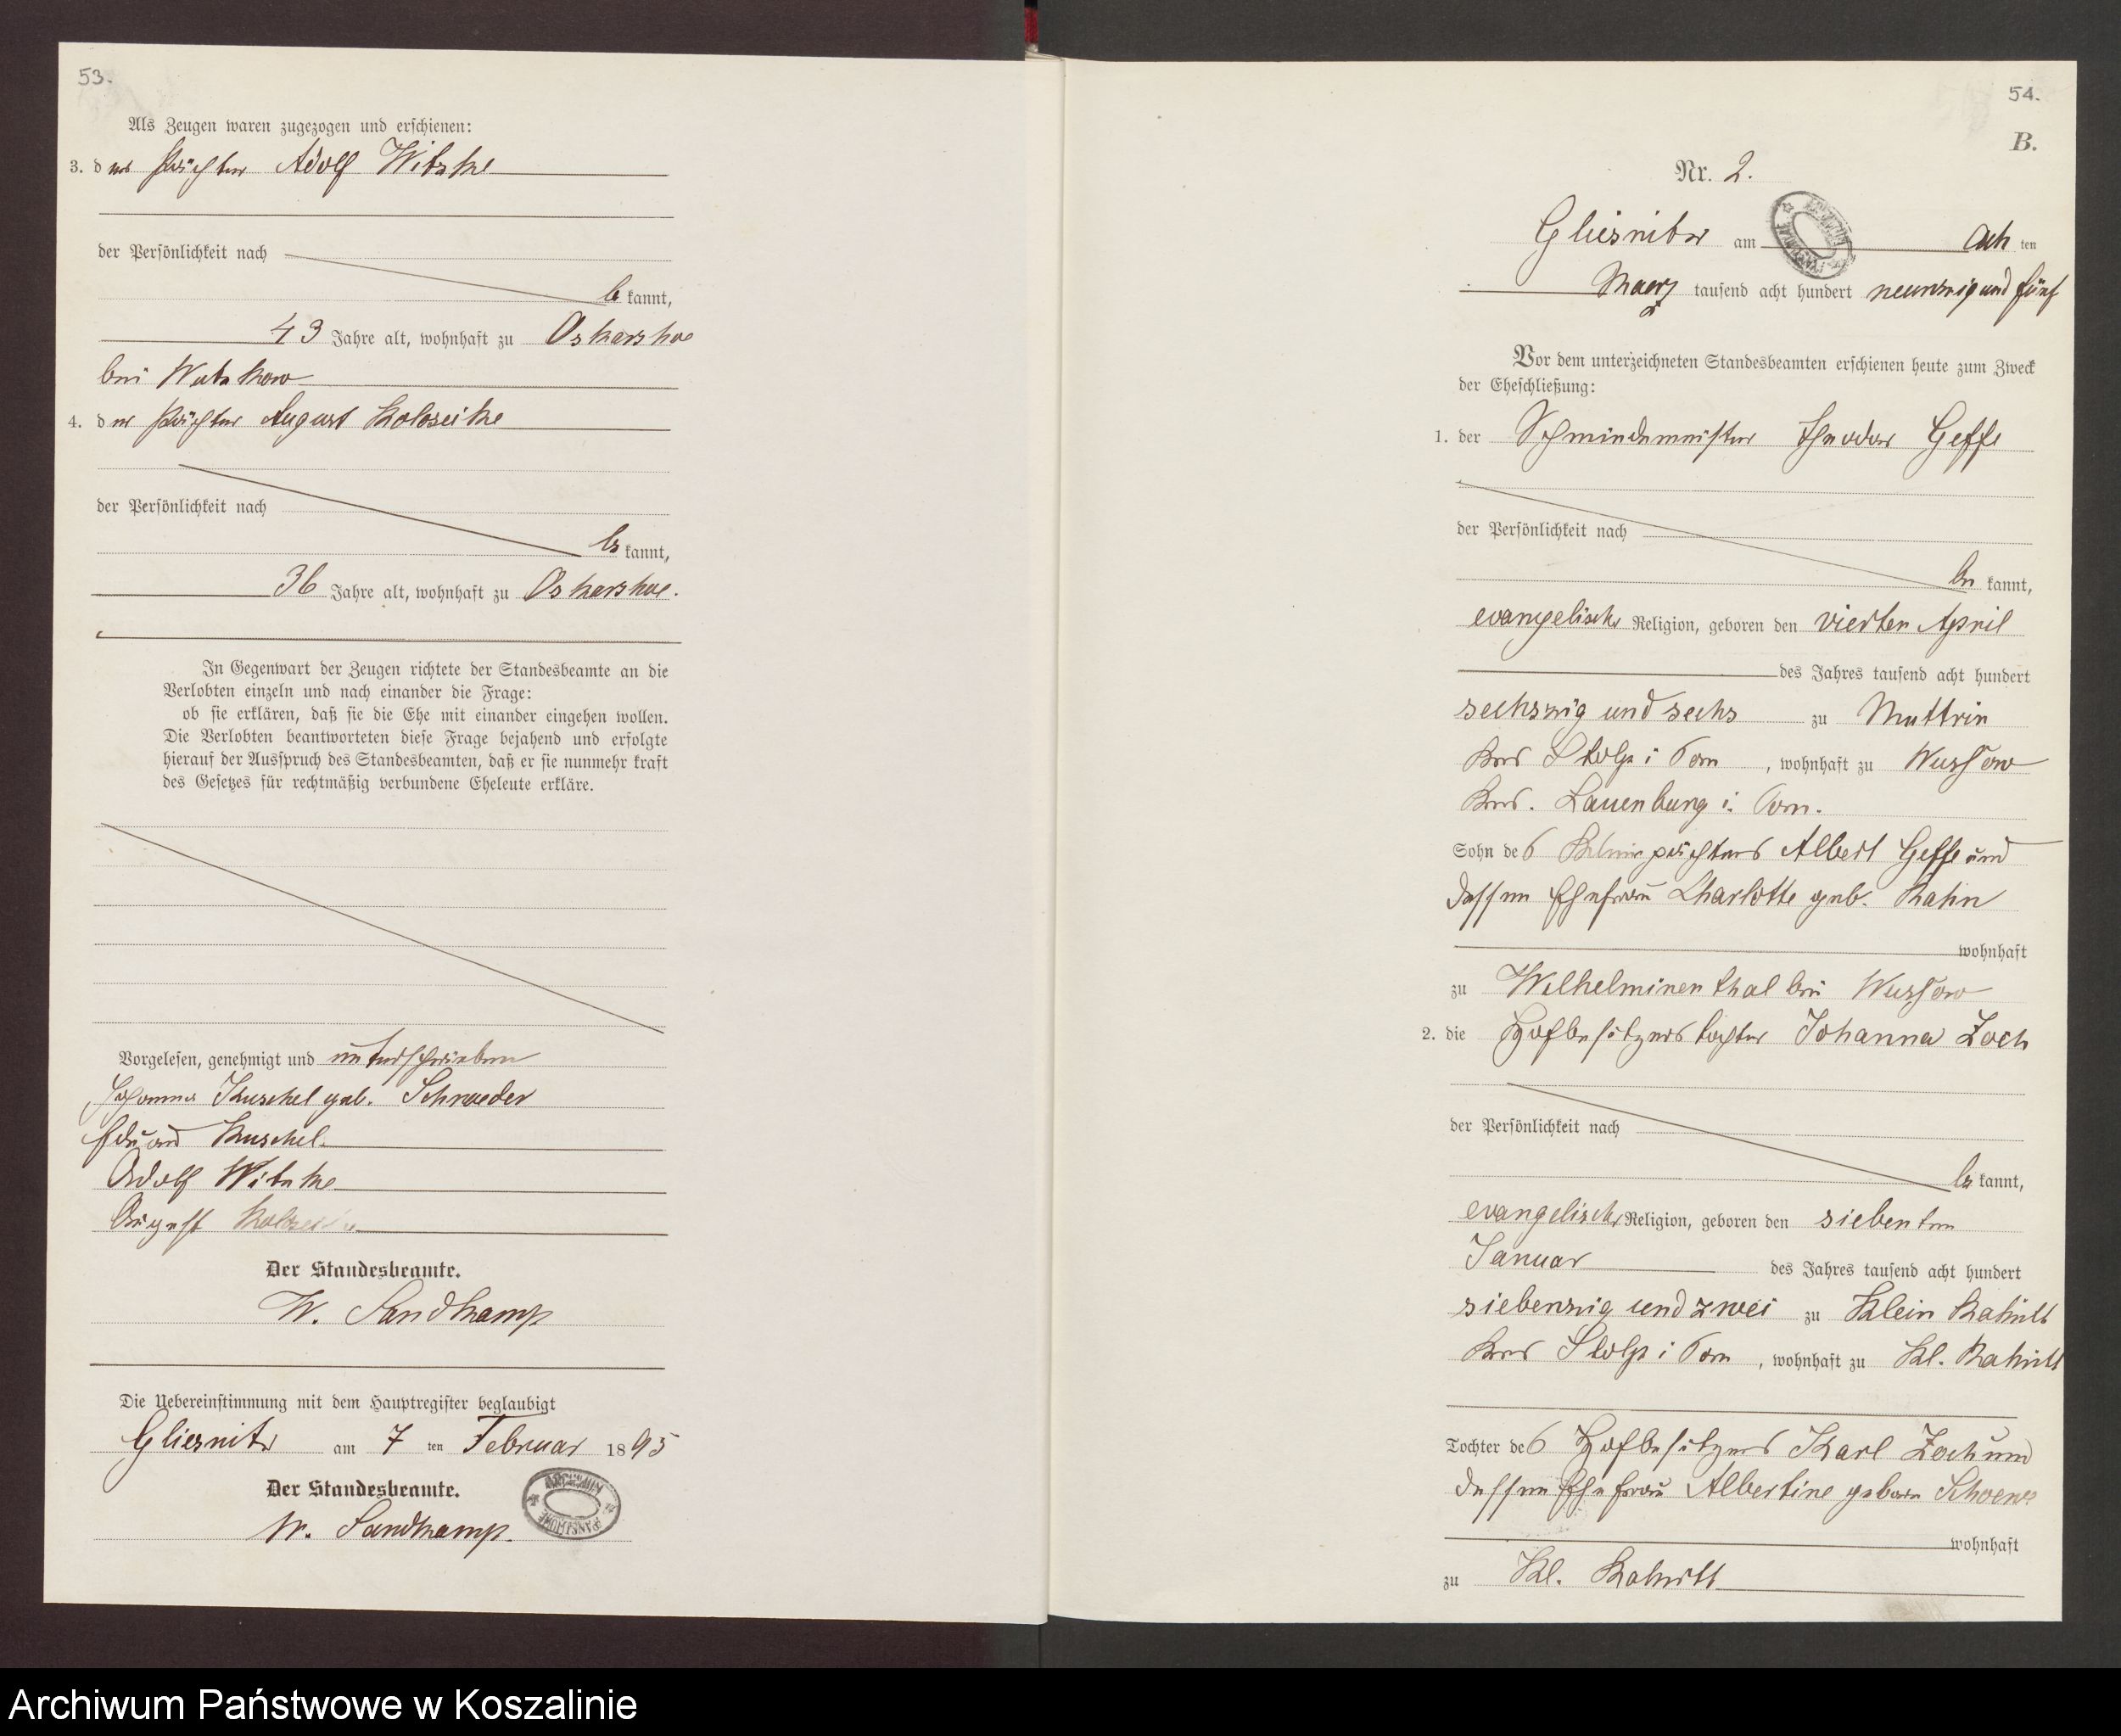 53.
Als Zeugen waren zugezogen und erschienen:
3. der Pächter Adolf Witzke
der Persönlichkeit nach
be kannt,
43 Jahre alt, wohnhaft zu Oskarshoe
bei Wutzkow
4. der Pächter August Kolozeike
der Persönlichkeit nach
be kannt,
36 Jahre alt, wohnhaft zu Oskarshoe.
In Gegenwart der Zeugen richtete der Standesbeamte an die
Verlobten einzeln und nach einander die Frage:
ob sie erklären, daß sie die Ehe mit einander eingehen wollen.
Die Verlobten beantworteten diese Frage bejahend und erfolgte
hierauf der Ausspruch des Standesbeamten, daß er sie nunmehr kraft
des Gesetzes für rechtmäßig verbundene Eheleute erkläre.
Vorgelesen, genehmigt und unterschrieben
Johanna Kuschel geb. Schroeder
Eduard Kuschel.
Adolf Witzke
August
Der Standesbeamte.
W. Sandkamp
Die Uebereinstimmung mit dem Hauptregister beglaubigt
Gliesnitz am 7 ten Februar 1895
Der Standesbeamte.
W. Sandkamp.
54.
B.
Nr. 2.
Gliesnitz am ach ten
Maerz tausend acht hundert neunzig und fünf
Vor dem unterzeichneten Standesbeamten erschienen heute zum Zweck
der Eheschließung:
1. der Schmiedemeister Theodor Geffe
der Persönlichkeit nach
be kannt,
evangelischer Religion, geboren den vierten April
des Jahres tausend acht hundert
sechszig und sechs zu Muttrin
Kreis Stolp i Pom, wohnhaft zu Wussow
Kreis. Lauenburg i. Pom.
Sohn des Kleinpächters Albert Geffe und
dessen Ehefrau Charlotte geb. Kahn
wohnhaft
zu Wilhelminenthal bei Wussow
2. die Hofbesitzerstochter Johanna Zoch
der Persönlichkeit nach
be kannt,
evangelischer Religion, geboren den siebenten
Januar des Jahres tausend acht hundert
siebenzig und zwei zu Klein Rakitt
Kreis Stolp i Pom, wohnhaft zu Kl. Rakitt
Tochter des Hofbesitzers Karl Zoch und
dessen Ehefrau Albertine geborne
wohnhaft
zu Kl. Rakitt
Archiwum Państwowe w Koszalinie